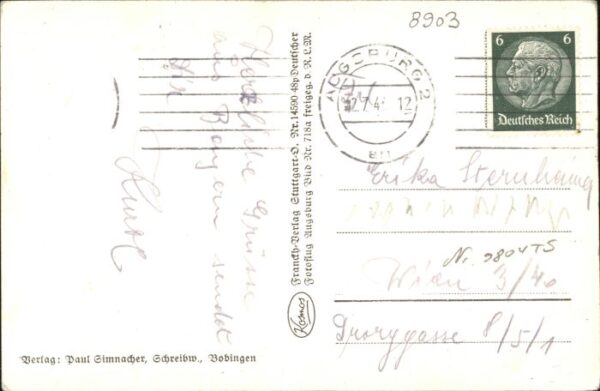 8903
6 6
Deutsches Reich
AUGSBURG 2
12
Herzliche Grüsse
aus Bayern sendet
Kurt
Franckh-Verlag Stuttgart-O. Nr. 14690 48p Deutscher
Fotoflug Augsburg Bild Nr. 718a freigeg. d. R.L.M.
Kosmos
Erika
Nr.
Wien 3/40
8/5/1
Verlag: Paul Simnacher, Schreibw., Bobingen